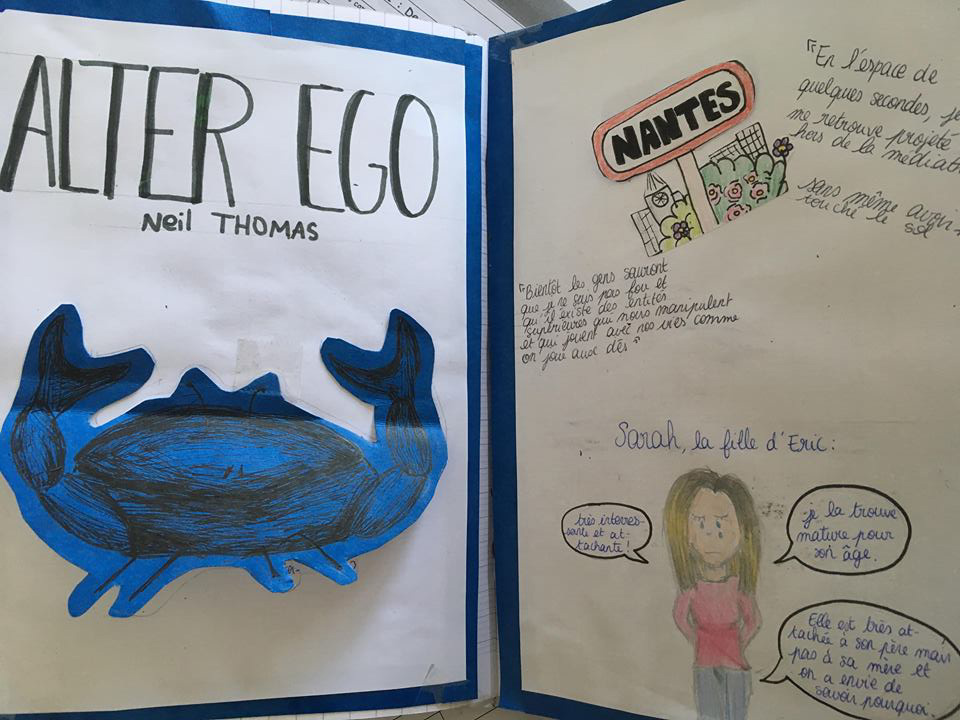 ALTER EGO
Neil THOMAS
NANTES
"En l'espace de
quelques secondes, je
me retrouve projeté
hors de la médiath
sans même avoir
touché le sol
"Bientôt les gens sauront
que je ne suis pas fou et
qu'il existe des entités
supérieures qui nous manipulent
et qui jouent avec nos vies comme
on joue aux dés"
Sarah, la fille d'Eric:
très interres-
sante et at-
tachante!
je la trouve
mature pour
son âge.
Elle est très at-
tachée à son père mais
pas à sa mère et
on a envie de
savoir pourquoi.